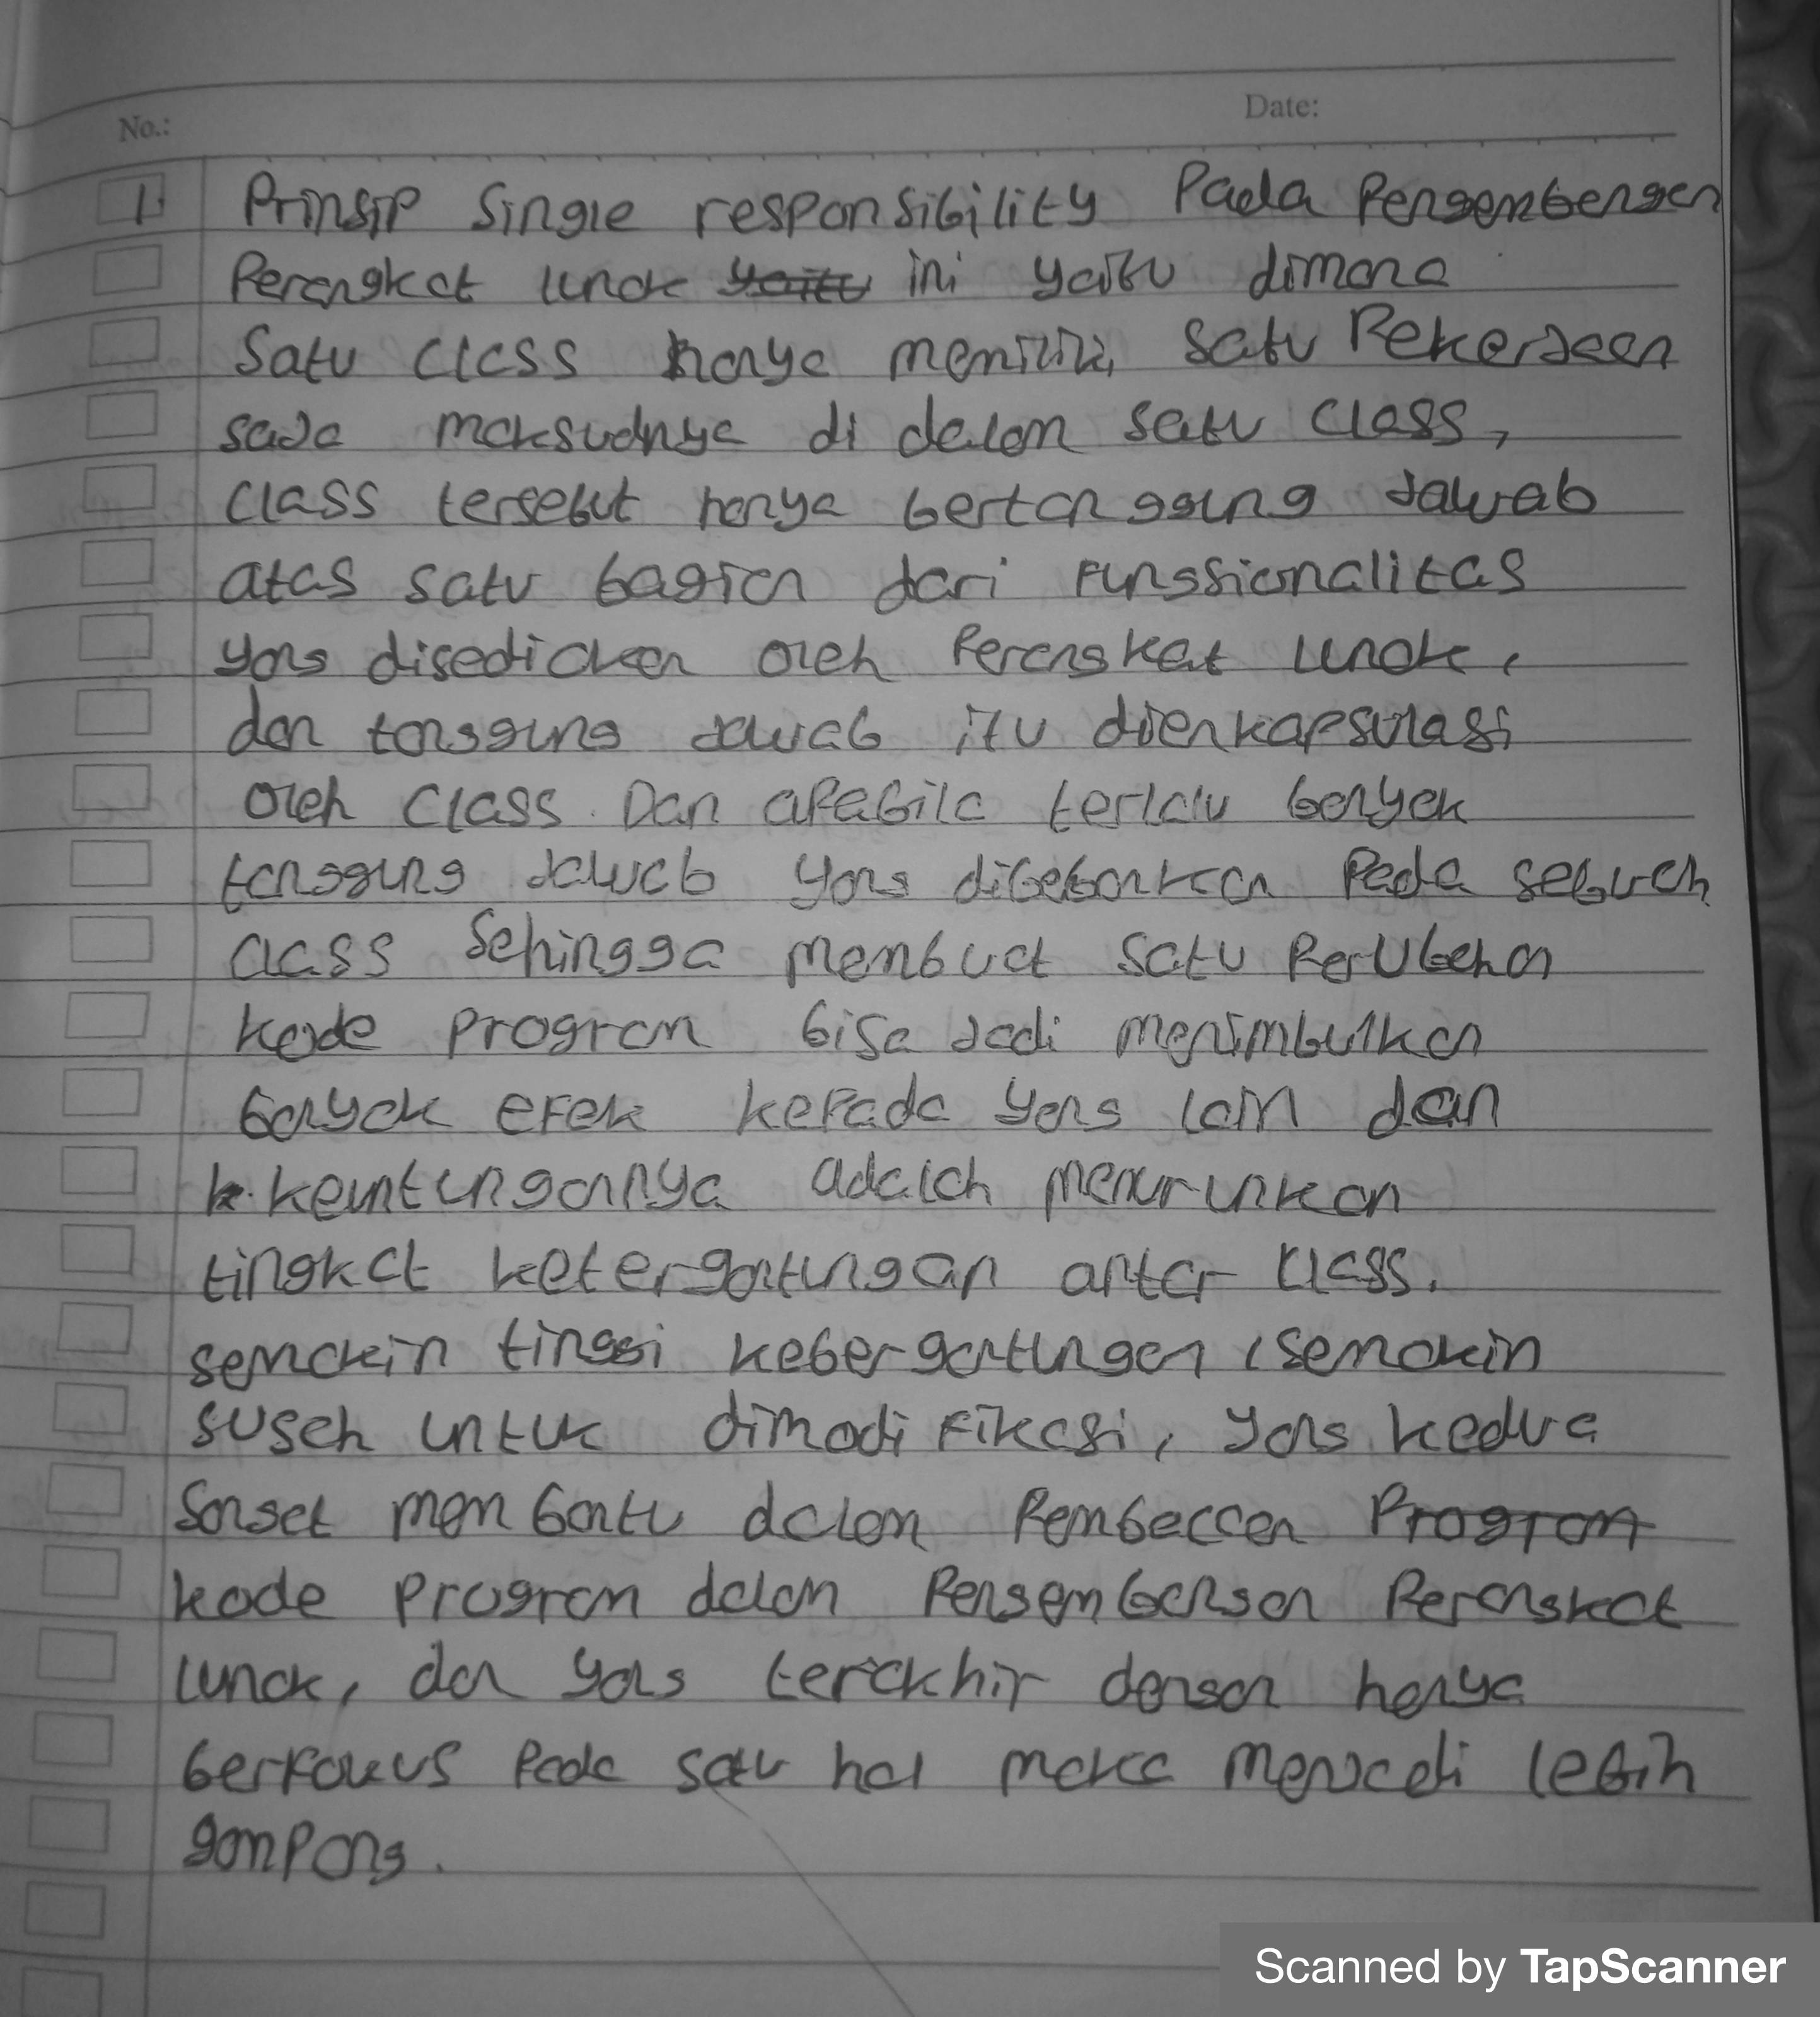 No.:
Date:
1. Prinsip Single responsibility Pada Pengembangan
Perangkat lunak yaitu ini yaitu dimana
Satu class hanya memiliki satu Pekerjaan
saja maksudnya di dalam satu class,
class tersebut hanya bertanggung Jawab
atas satu bagian dari Fungsionalitas
yang disediakan oleh Perangkat lunak,
dan tanggung Jawab itu dienkapsulasi
oleh class. Dan apabila terlalu banyak
tanggung Jawab yang dibebankan Pada sebuah
class Sehingga membuat satu Perubahan
kode program bisa Jadi menimbulkan
banyak efek kepada yang lain dan
keuntungannya adalah menurunkan
tingkat ketergantungan antar class.
semakin tinggi kebergantungan, semakin
susah untuk dimodifikasi, yang kedua
Sangat membantu dalam Pembacaan Program
kode program dalam Pengembangan Perangkat
lunak, dan yang terakhir dengan hanya
berfokus Pada satu hal maka menjadi lebih
gampang.
Scanned by TapScanner